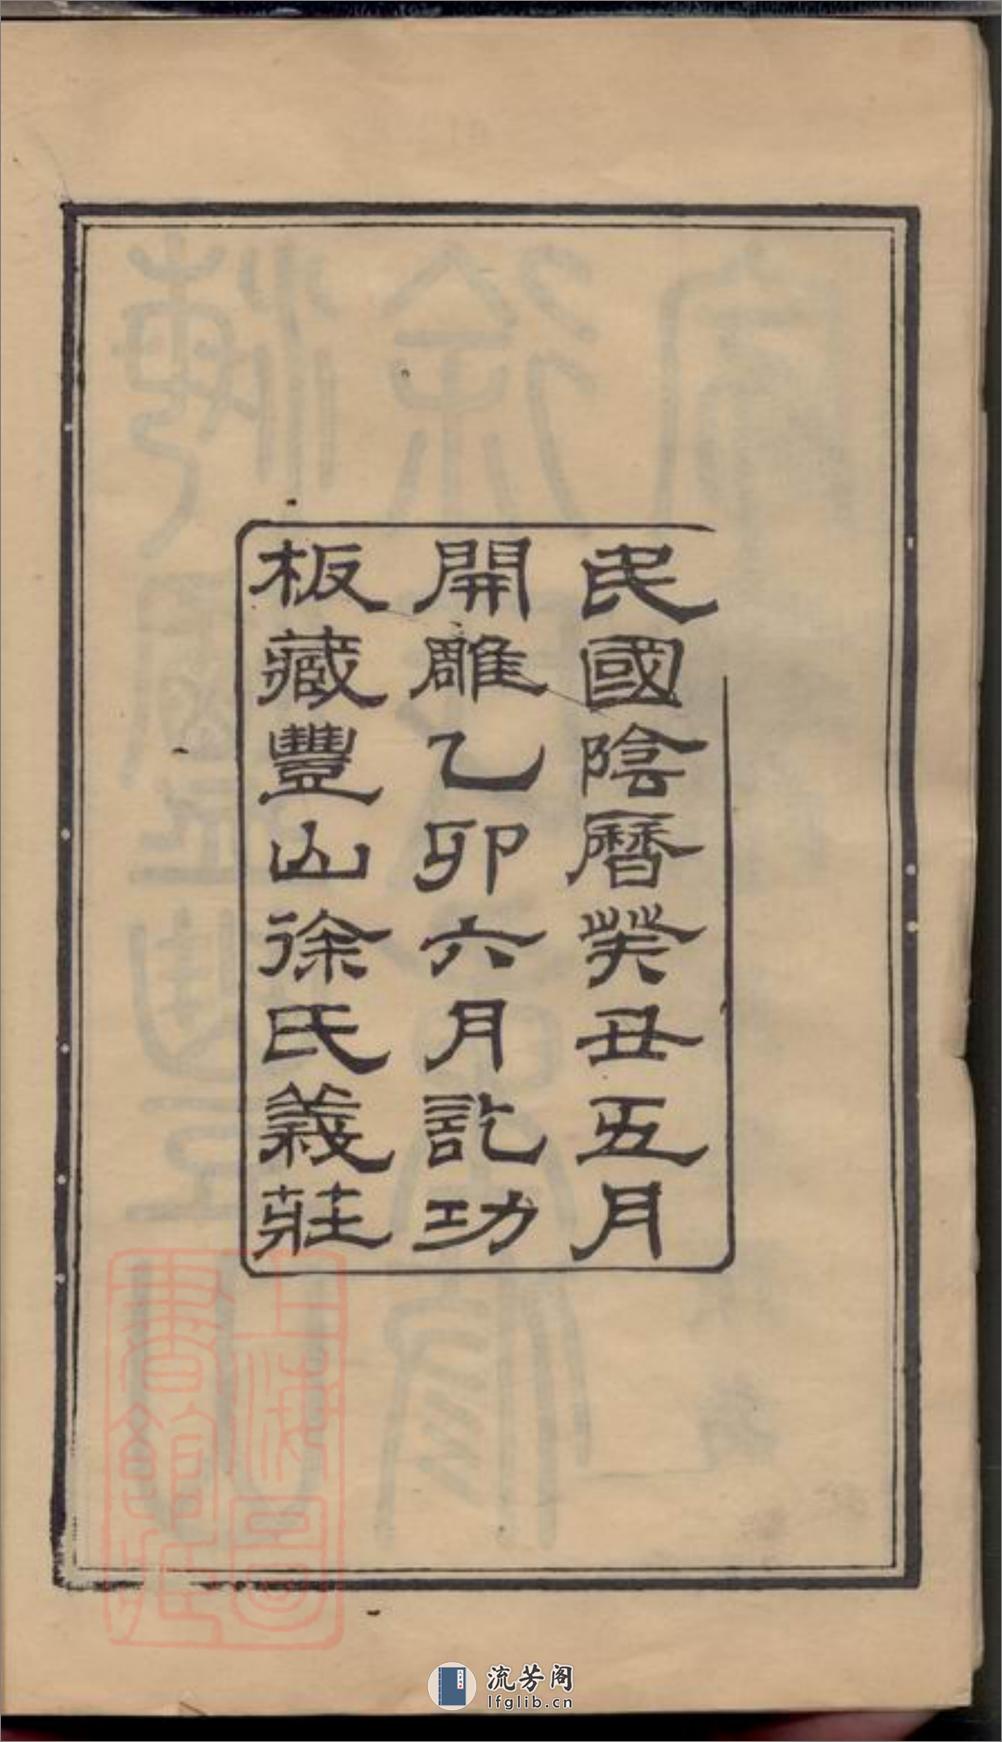 民國陰曆癸丑五月
開雕乙卯六月訖功
板藏豐山徐氏義莊
上海圖
書館藏
流芳阁
lfglib.cn